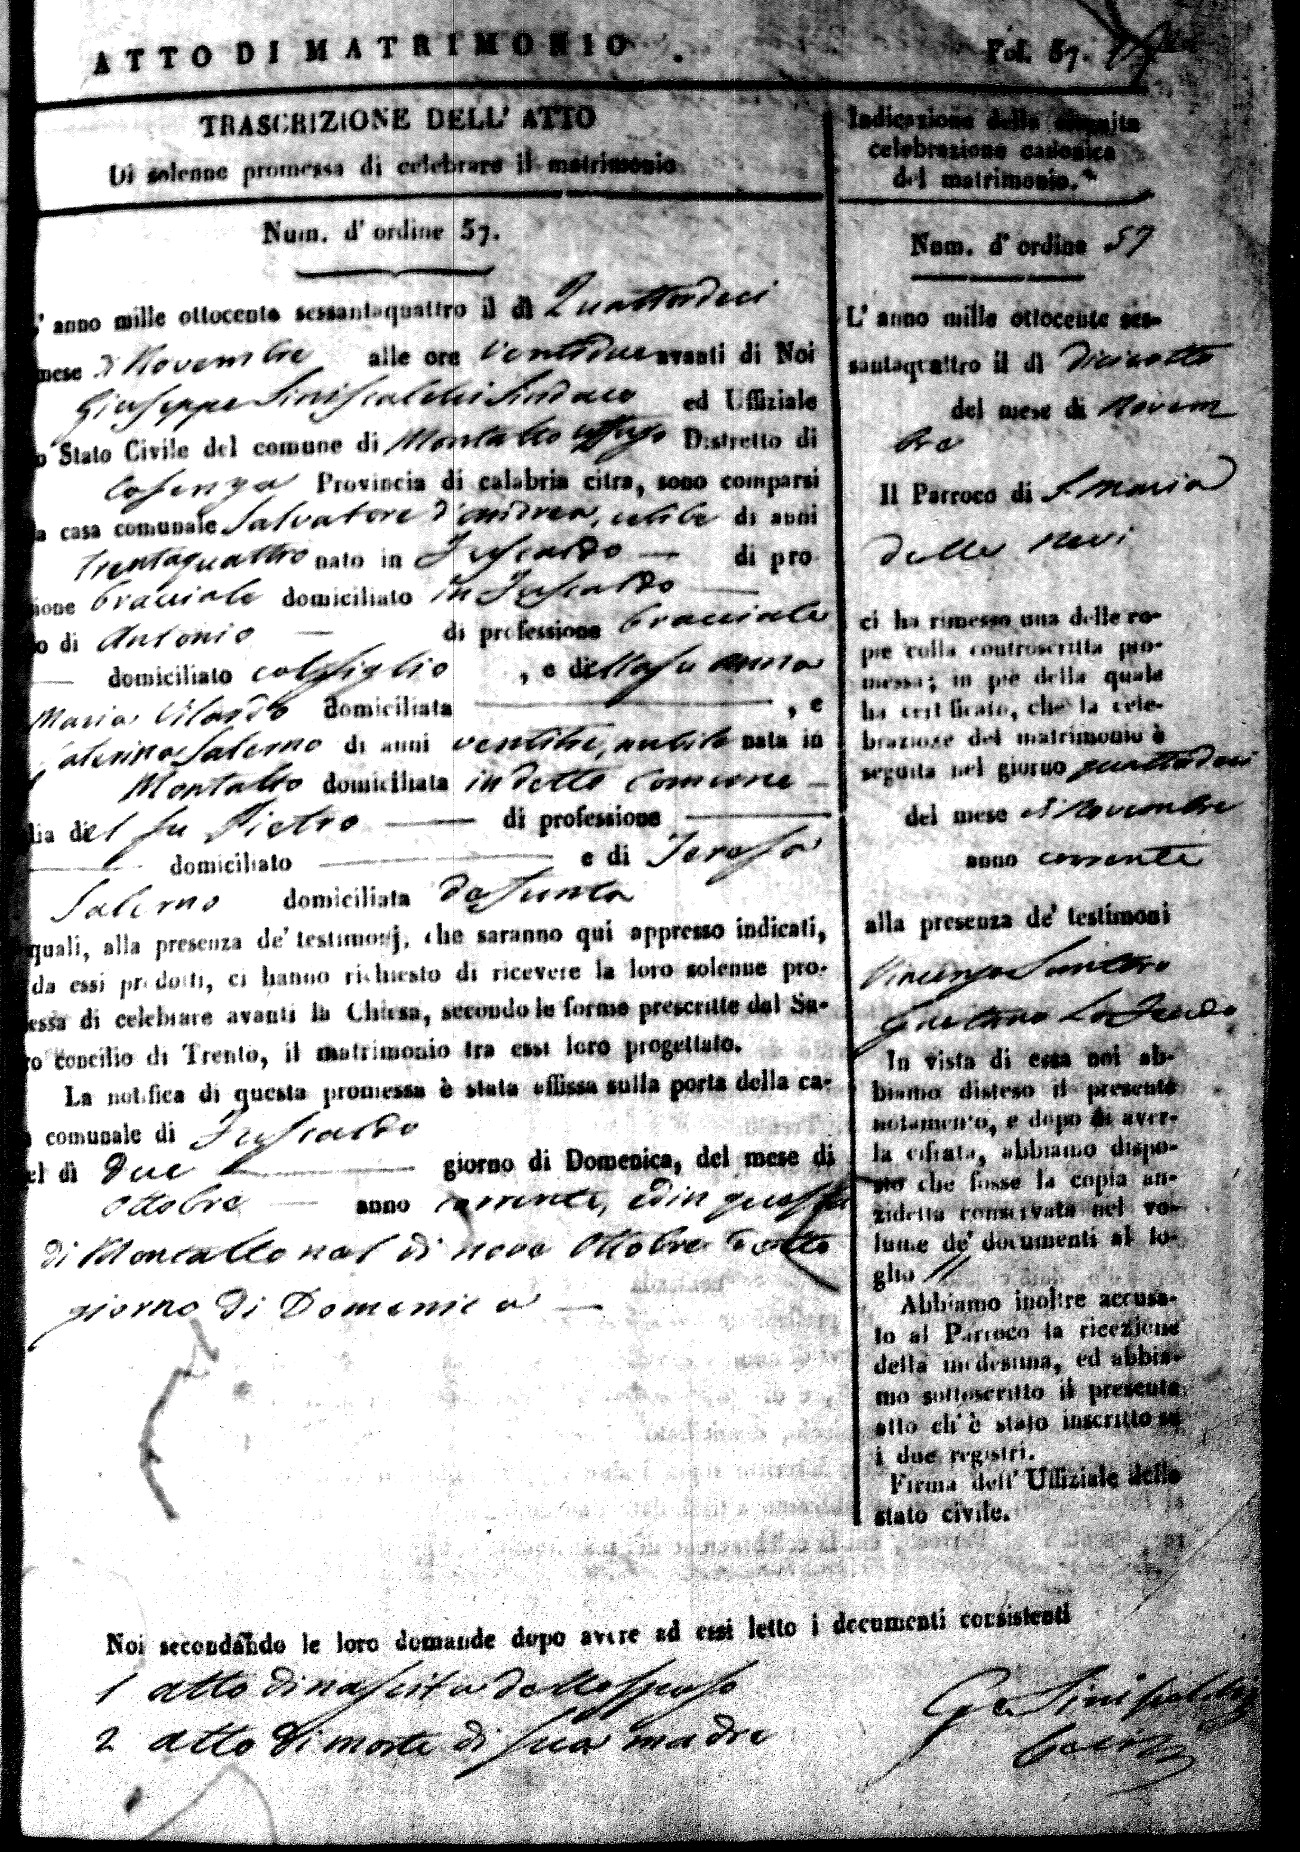 ATTO DI MATRIMONIO.
Fol. 57.
TRASCRIZIONE DELL' ATTO
Di solenne promessa di celebrare il matrimonio
Num. d' ordine 57.
' anno mille ottocento sessantaquattro il dì Quattordeci
mese di Novembre alle ore ventidue avanti di Noi
Giuseppe Siniscalchi Sindaco ed Uffiziale
o Stato Civile del comune di Montalto uffugo Distretto di
Cosenza Provincia di calabria citra, sono comparsi
a casa comunale Salvatore d'andrea, celibe di anni
trentaquattro nato in Fuscaldo — di pro
ione bracciale domiciliato in Fuscaldo —
o di Antonio — di professione bracciale
— domiciliato col figlio, e della fu anna
Maria Vilardo domiciliata —, e
Caterina Salerno di anni ventitre, nubile nata in
Montalto domiciliata in detto comune —
lia del fu Pietro — di professione —
— domiciliato — e di Teresa
Salerno domiciliata defunta
quali, alla presenza de' testimonj, che saranno qui appresso indicati,
da essi prodotti, ci hanno richiesto di ricevere la loro solenne pro-
essa di celebrare avanti la Chiesa, secondo le forme prescritte dal Sa-
ro concilio di Trento, il matrimonio tra essi loro progettato.
La notifica di questa promessa è stata affissa sulla porta della ca-
comunale di Fuscaldo
el dì due — giorno di Domenica, del mese di
Ottobre — anno corrente, ed in questa
di Montalto nel dì nove Ottobre detto
giorno di Domenica —
Noi secondando le loro domande dopo avere ad essi letto i documenti consistenti
1 atto di nascita dello sposo
2 atto di morte di sua madre
Indicazione della seguita
celebrazione canonica
del matrimonio.
Num. d' ordine 57
L' anno mille ottocento ses-
santaquattro il dì diciotto
del mese di Novem
bre
Il Parroco di S. Maria
della Nevi
ci ha rimesso una delle co-
pie colla controscritta pro-
messa; in piè della quale
ha certificato, che la cele-
brazione del matrimonio è
seguita nel giorno quattordeci
del mese di Novembre
anno corrente
alla presenza de' testimoni
Vincenzo Santoro
Gaetano
In vista di essa noi ab-
biamo disteso il presente
notamento, e dopo di aver-
la cifrata, abbiamo dispo-
sto che fosse la copia an-
zidetta conservata nel vo-
lume de' documenti al fo-
glio //
Abbiamo inoltre accusa-
to al Parroco la ricezione
della medesima, ed abbia-
mo sottoscritto il presente
atto ch' è stato inscritto su
i due registri.
Firma dell' Uffiziale dello
stato civile.
Siniscalchi